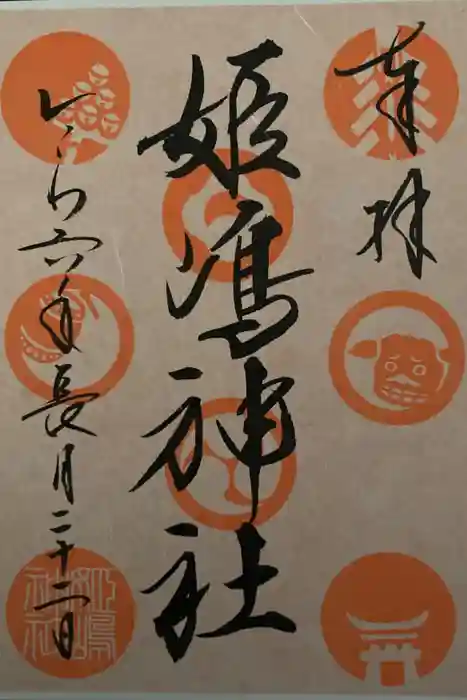 奉拝
姫嶋神社
令和六年長月二十二日
姫嶋神社